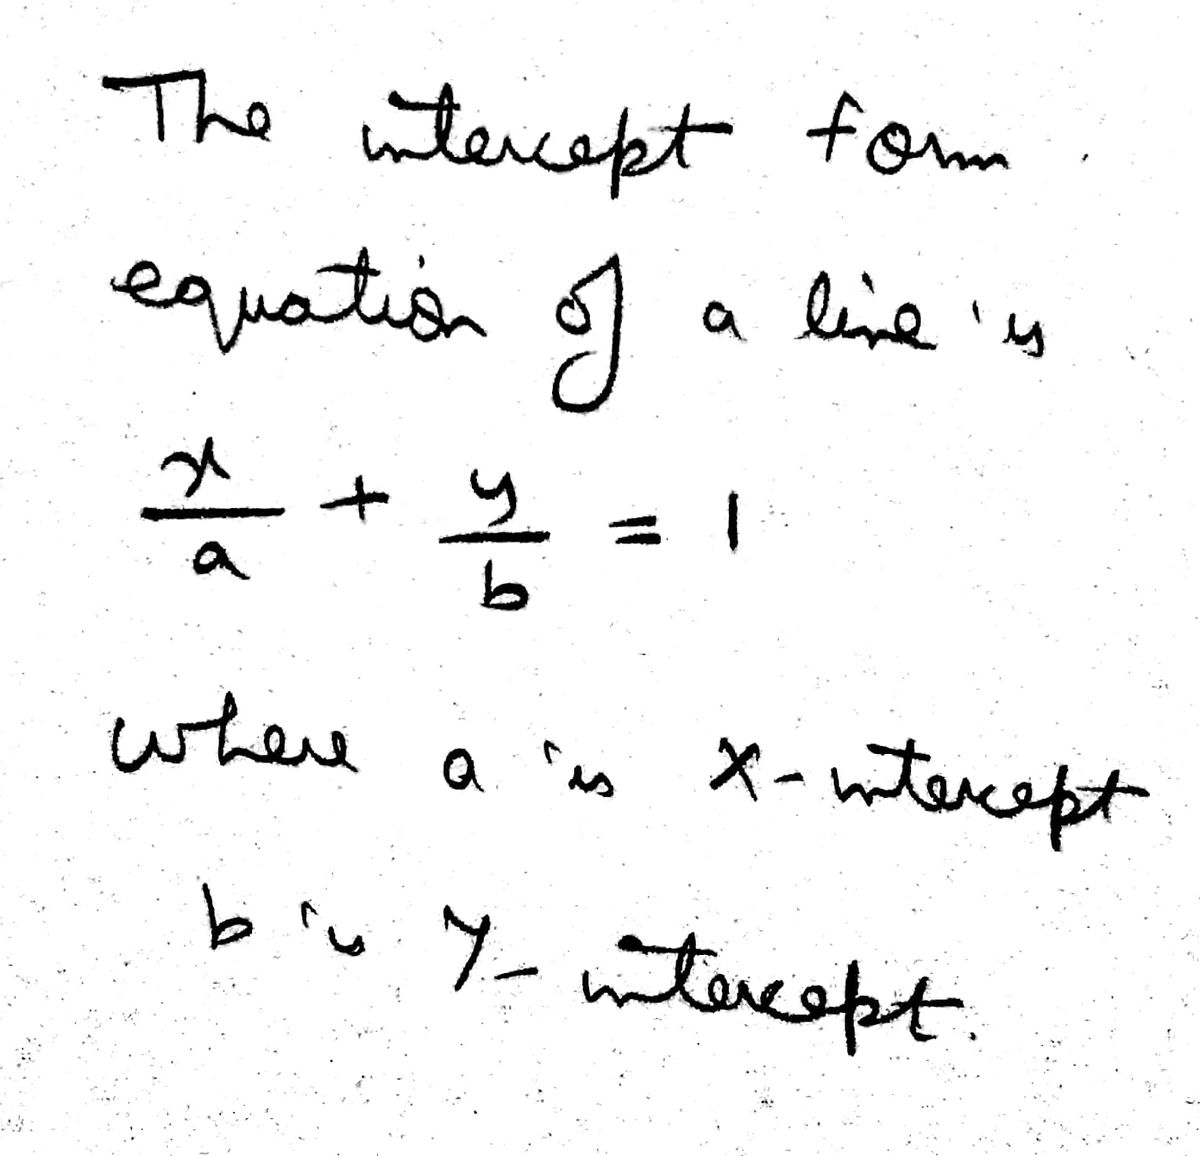 The intercept form
equation of a line is
x/a + y/b = 1
where a is X-intercept
b is Y-intercept.